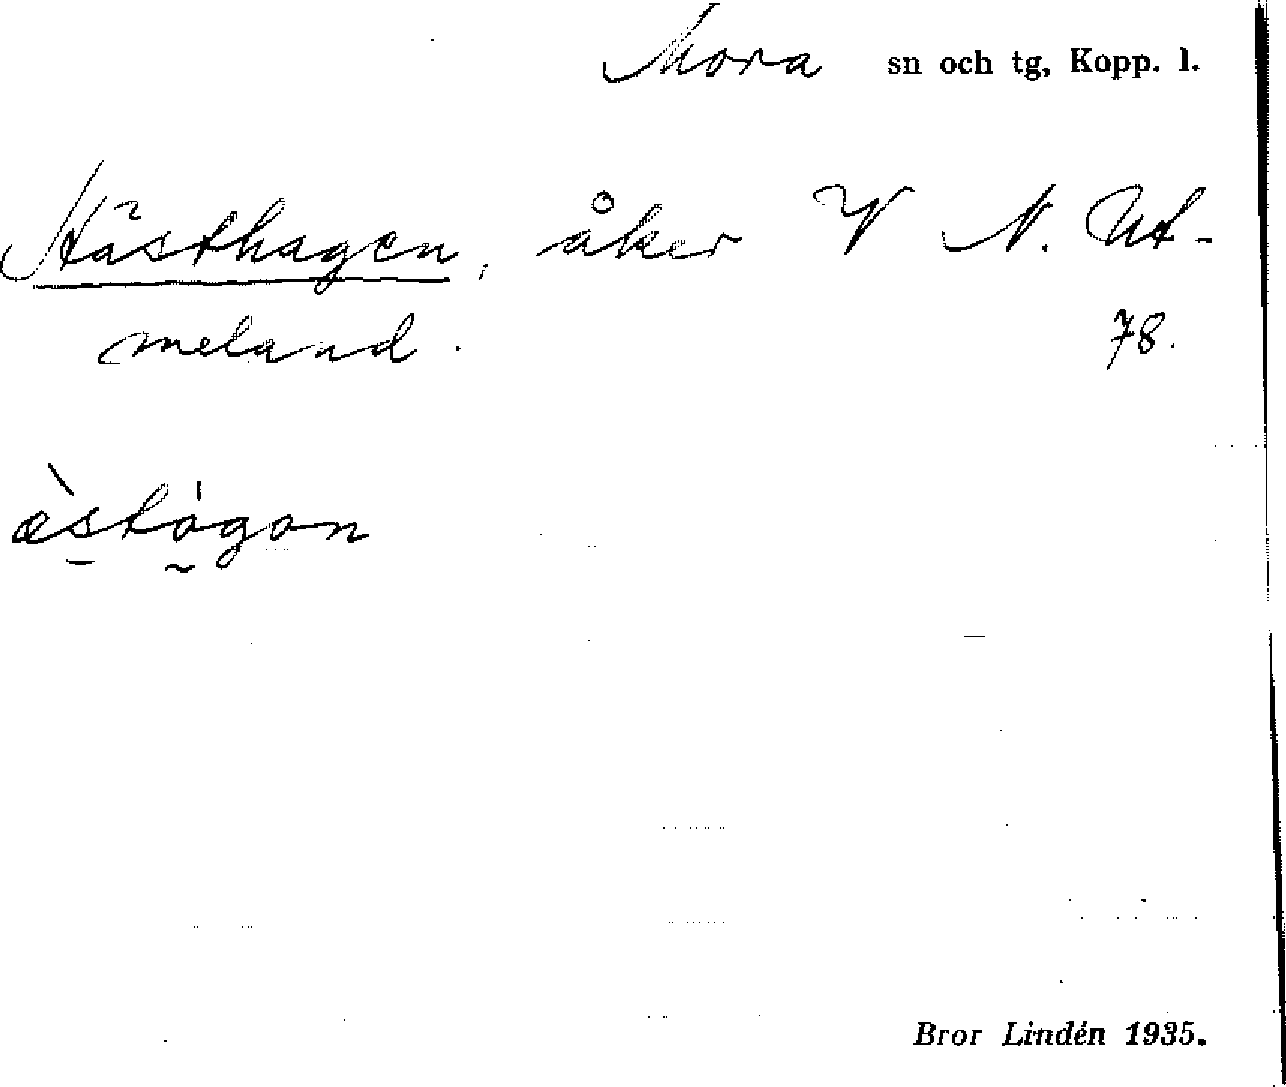 Mora sn och tg, Kopp. l.
Hästhagen, åker V N. Ut-
meland. 78.
æ̀stògon
Bror Lindén 1935.